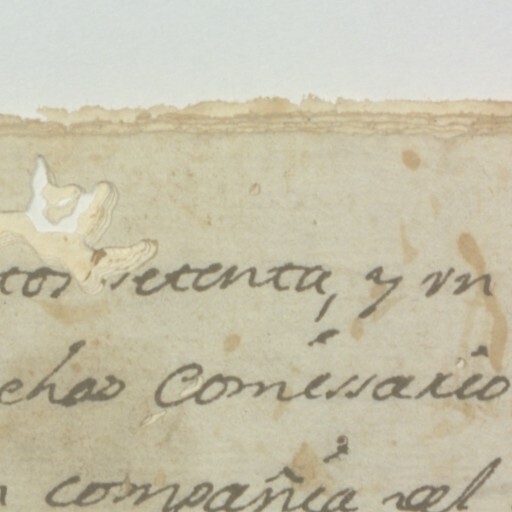 tos setenta, y un
chos Comissario
compañia del